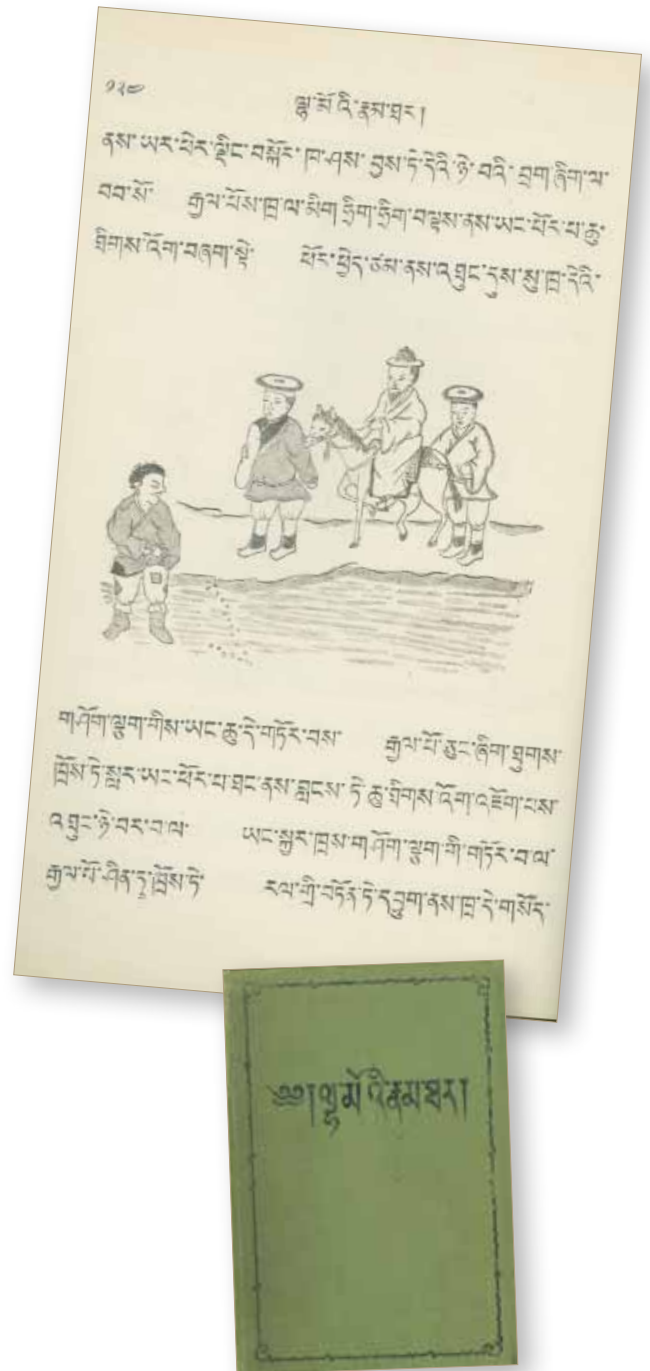 ༡༣༧
ལྷ་མོ་འི་རྣམ་ཐར།
ནས་ཡར་ཕིར་ལྡིང་བསྐོར་ཁ་ཤས་བྱས་ཏེ་དེའི་ཉེ་བའི་བྲག་ཞིག་ལ་
བབ་སོ་ རྒྱལ་པོས་ཁྲ་ལ་མིག་ཧྲིག་ཧྲིག་བལྟས་ནས་ཡང་ཕོར་པ་ཆུ་
ཐིགས་འོག་བཞག་སྟེ་ ཕོར་ཕྱེད་ཙམ་ནས་འཐུང་དུས་སུ་ཁྲ་དེའི་
གཤོག་ལྕག་གིས་ཡང་ཆུ་དེ་གཏོར་བས་ རྒྱལ་པོ་ཅུང་ཞིག་ཐུགས་
ཁྲོས་ཏེ་སླར་ཡང་ཕོར་པ་ཐང་ནས་བླངས་ཏེ་ཆུ་ཐིགས་འོག་འཇོག་པས་
འཐུང་ཉེ་བར་བ་ལ་ ཡང་སྐྱར་ཁྲས་གཤོག་ལྕག་གི་གཏོར་བ་ལ་
རྒྱལ་པོ་ཤིན་ཏུ་ཁྲོས་ཏེ་ རལ་གྲི་བཏོན་ཏེ་དབྱུག་ནས་ཁྲ་དེ་གསོད་
༄༅།ལྷ་མོ་འི་རྣམ་ཐར།